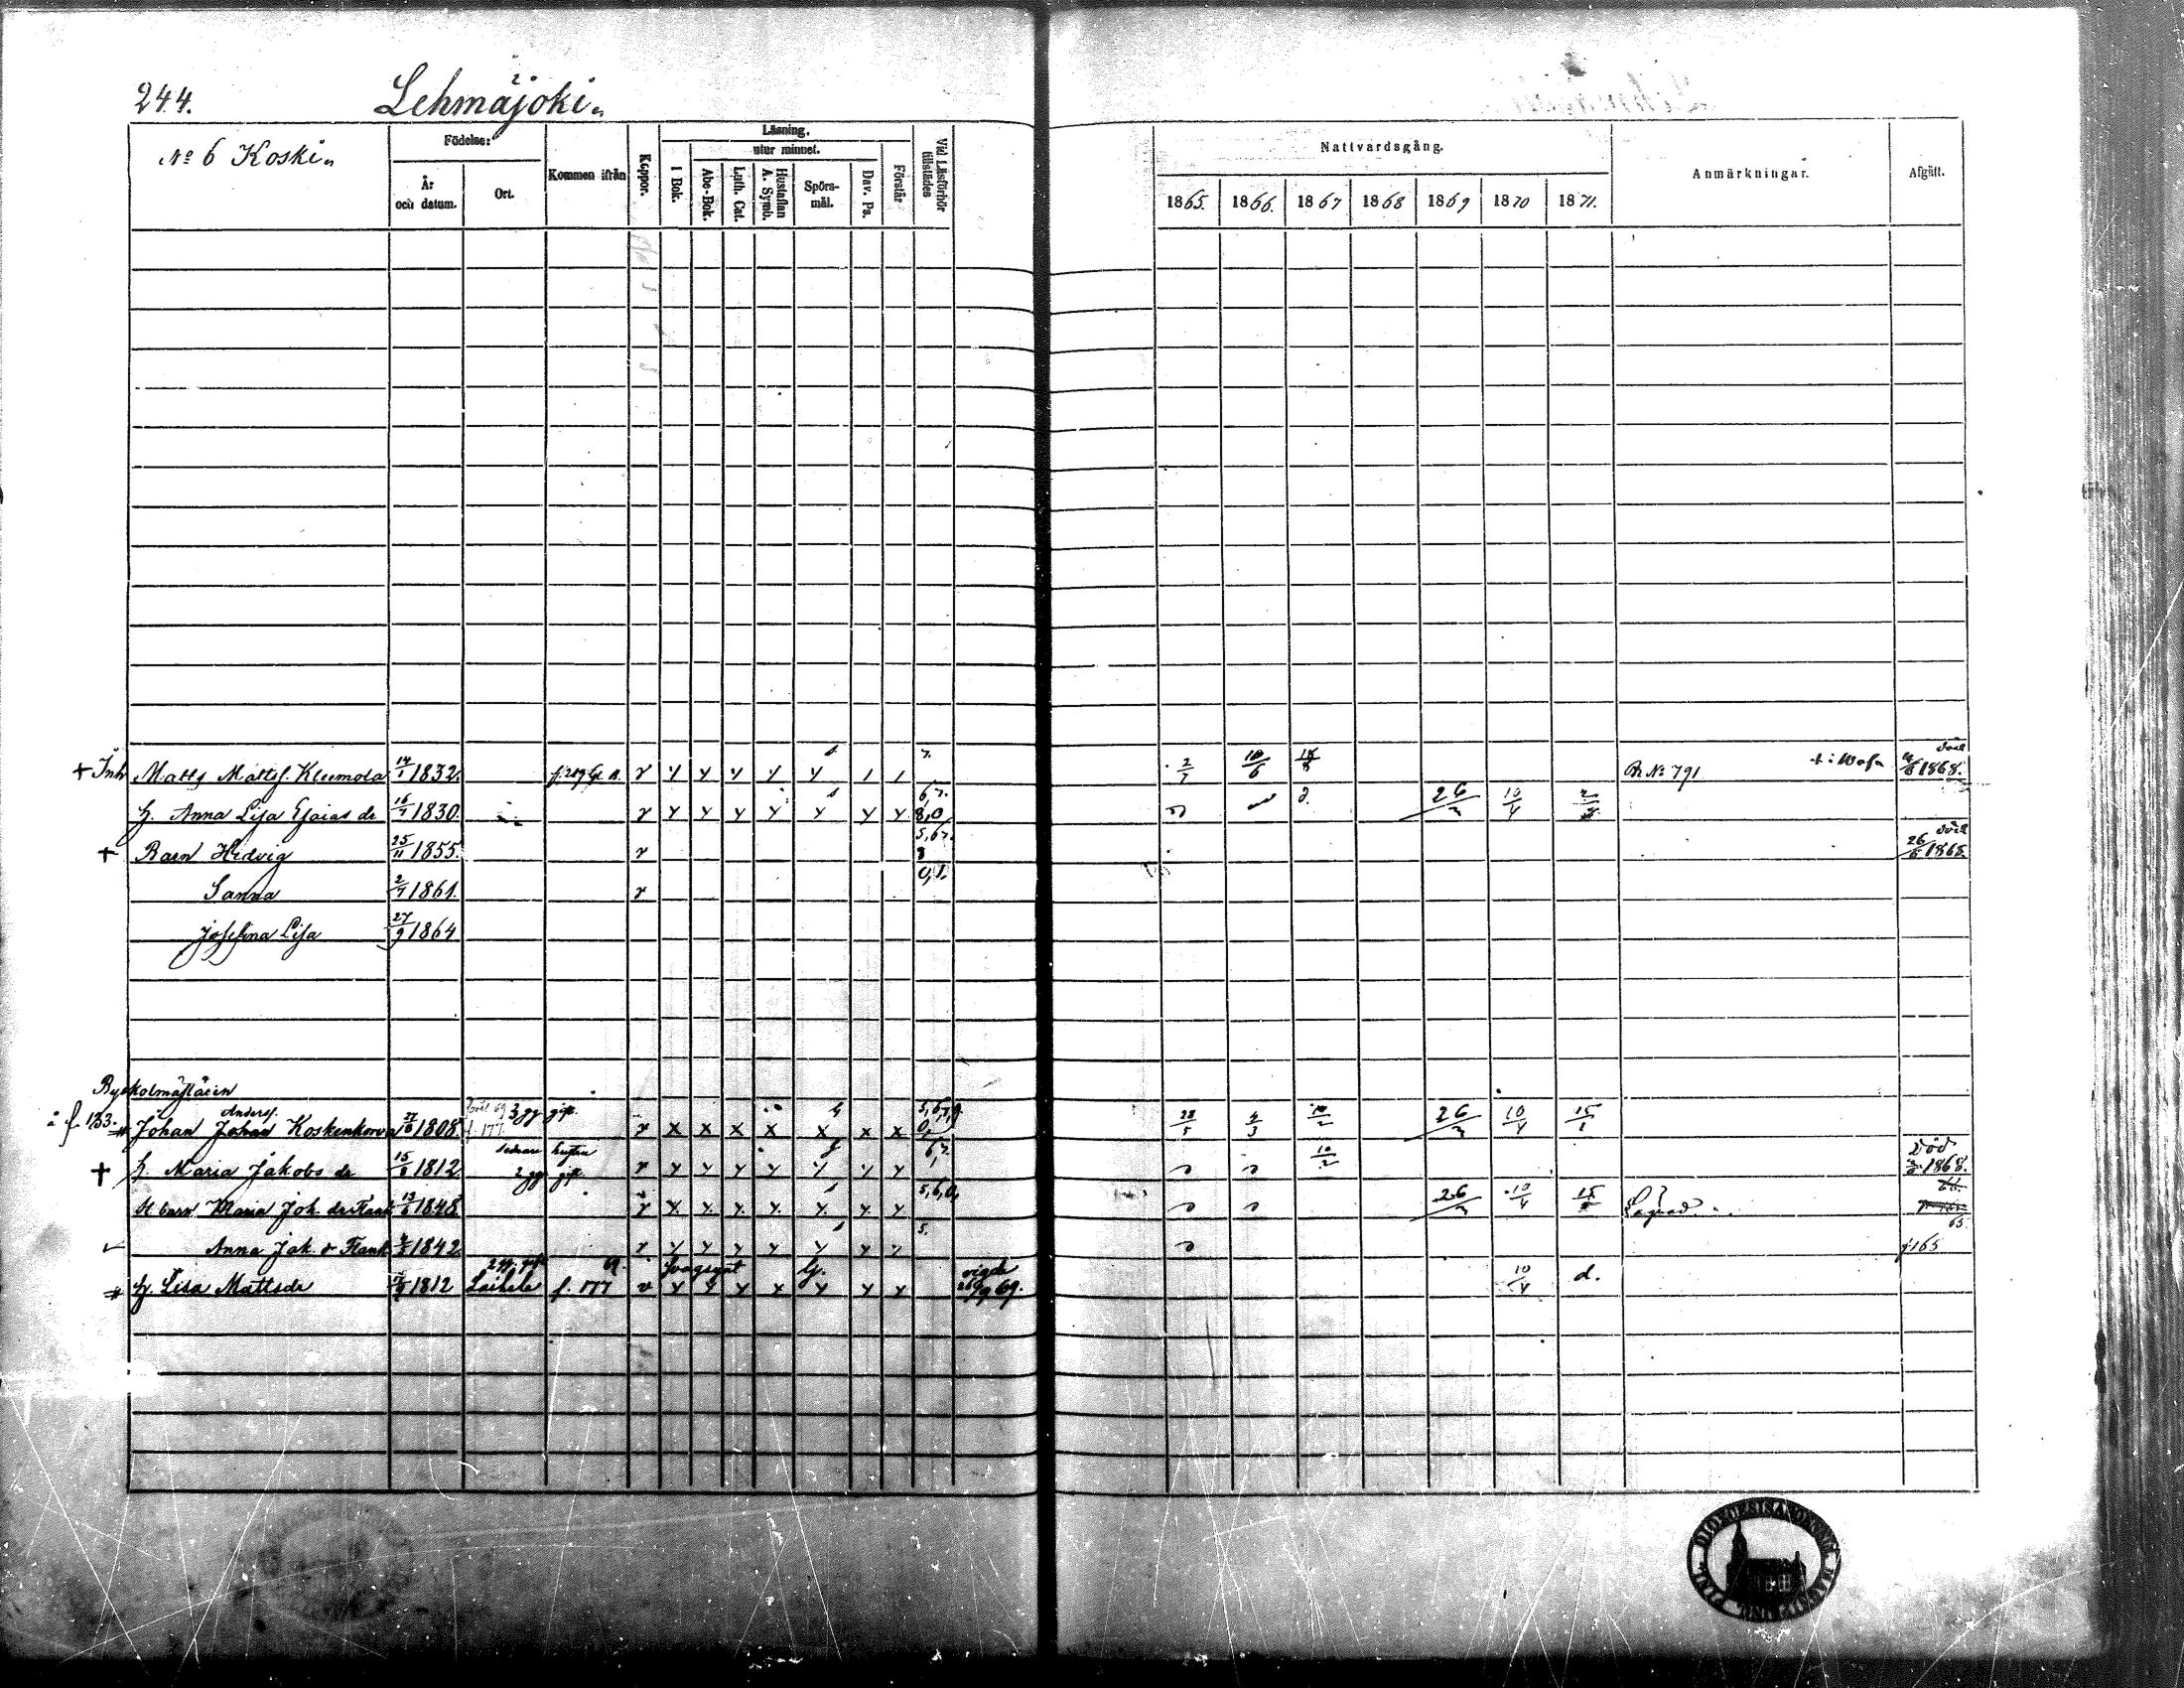 244. Lehmäjoki
No 6 Koski
Födelse: År och datum. Ort.
Kommen ifrån
Koppor.
Läsning.
I Bok.
utur minnet.
Abc-Bok.
Luth. Cat.
Hustaflan A. Symb.
Spörs-mål.
Dav. Ps.
Förstår
Vid Läsförhör tillstädes
Nattvardsgång.
1865. 1866. 1867 1868 1869 1870 1871.
Anmärkningar.
Afgått.
+ Inh Matts Mattss. Kleemola 14/1 1832. v y y y y y 1 1 7. 2/7 10/6 B. No 791 död 1868.
h. Anna Lisa Esaias dr 16/7 1830. v y y y y y y y 67. 8,0 26/3 10/4
+ Barn Hedvig 25/11 1855. v 5,67. 8 död 26/5 1868.
Sanna 2/7 1861. v 0,1.
Josefina Lisa 27/9 1864
Byskolmästaren
à f. 133. # Johan Anderss. Johan Koskenkorva 27/6 1808. f. 177 3 gg gift v x x x x x x x 5,6,7,9 0, 28/5 4/3 10/2 26/3 10/4 15/1
+ h. Maria Jakobs dr 15/8 1812 2 gg gift v y y y y y y y 67. 10/2 Död 1868.
H barn Maria Joh. dr Flank 1848 v y y y y y y y 5,6,0, 26/3 10/4 66. 65.
Anna Jak. dr Flank 1842 v y y y y y y y 5. f. 165
# h. Lisa Mattsdr 1812 2 gg. gift Laihela f. 177 69. Svagsynt v y y y x y y y vigde 26/9 69. 10/4 d.